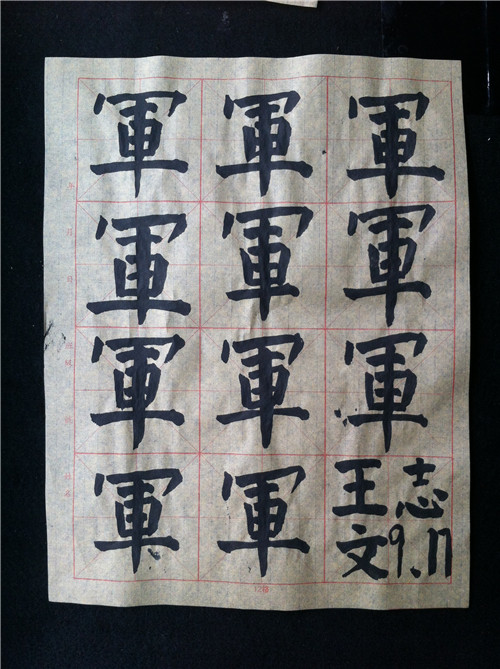 軍 軍 軍
軍 軍 軍
軍 軍 軍
軍 軍
王志
文9.17